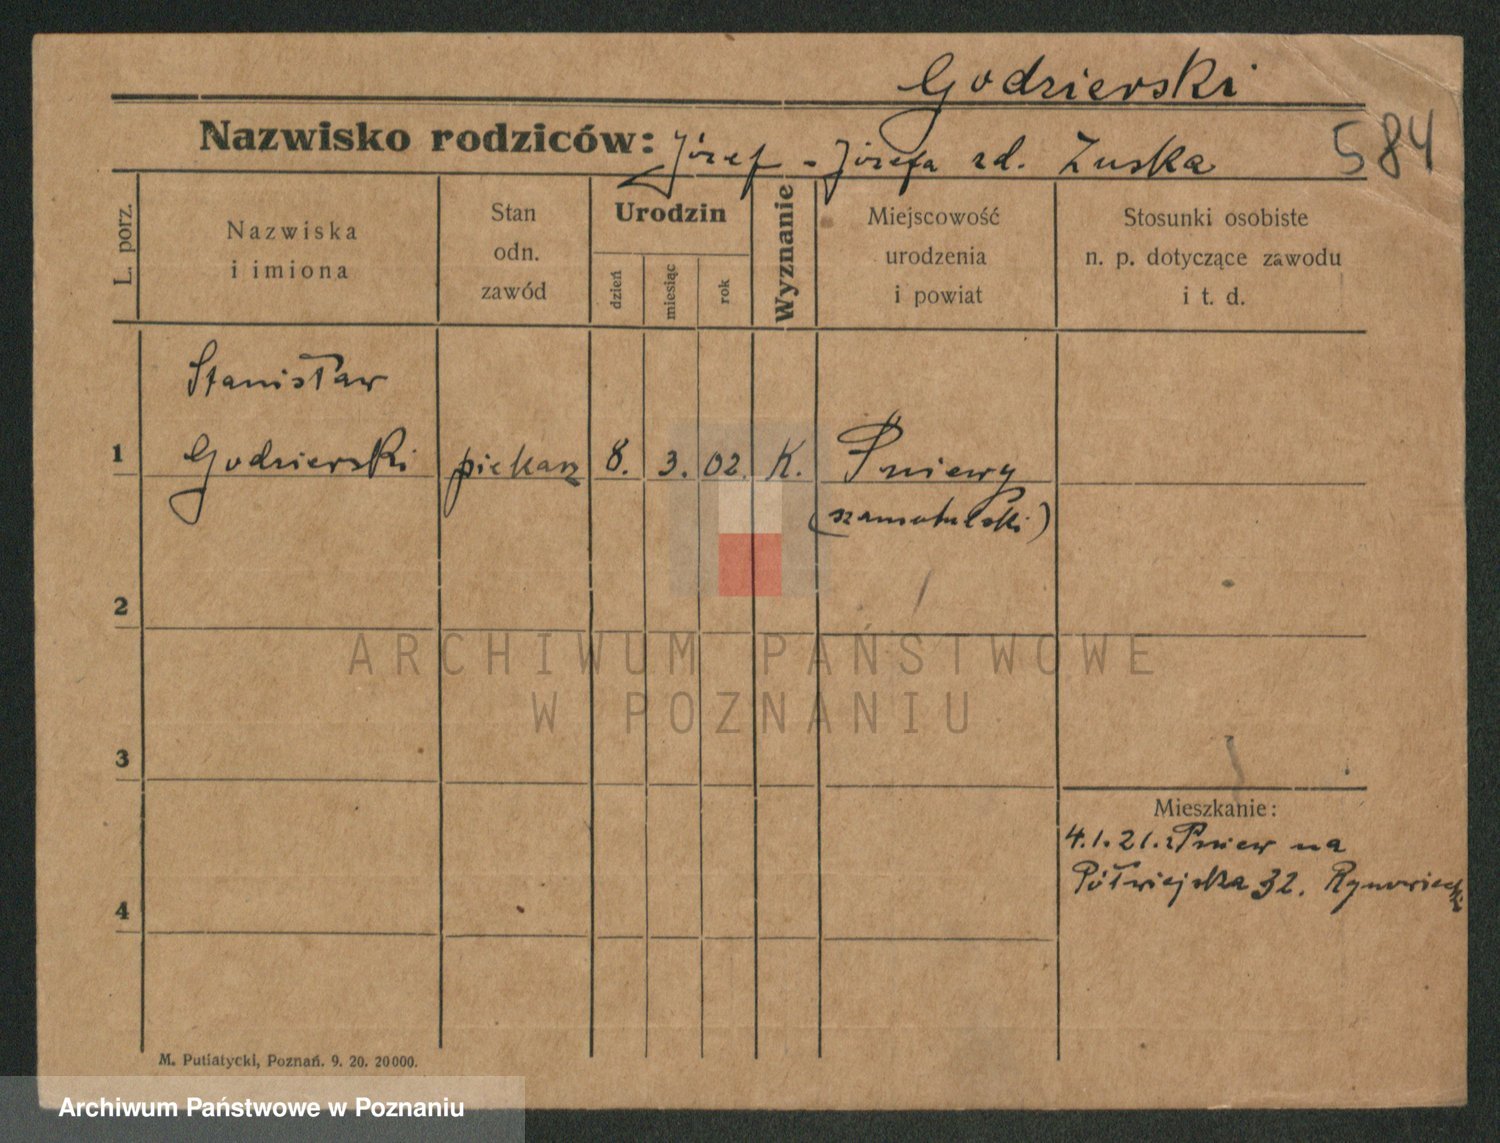 Godzierski
Nazwisko rodziców: Józef - Józefa zd. Zuska
584
L. porz.
Nazwiska
i imiona
Stan
odn.
zawód
Urodzin
dzień
miesiąc
rok
Wyznanie
Miejscowość
urodzenia
i powiat
Stosunki osobiste
n. p. dotyczące zawodu
i t. d.
Stanisław
1 Godzierski piekarz 8. 3. 02. K. Pniewy
(szamotulski)
2
ARCHIWUM PAŃSTWOWE
W POZNANIU
3
Mieszkanie:
4.1.21. z Pniew na
Półwiejska 32.
4
M. Putiatycki, Poznań. 9. 20. 20000.
Archiwum Państwowe w Poznaniu